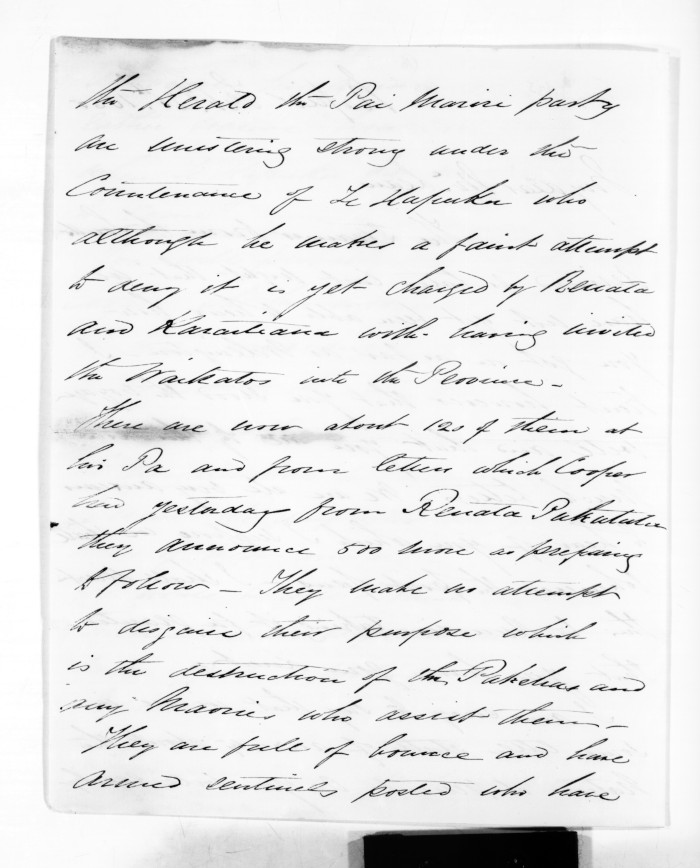 the Herald the Pai Marire party
are mustering strong under the
Countenance of Te Hapuku who
although he makes a faint attempt
to deny it is yet charged by Renata
and Karaitiana with having invited
the Waikatos into the Province -
There are now about 120 of them at
his Pa and from letters which Cooper
had yesterday from Renata
they announce 500 more as preparing
to follow - They make no attempt
to disguise their purpose which
is the destruction of the Pakehas and
any Maories who assist them -
They are full of bounce and have
armed sentinels posted who have